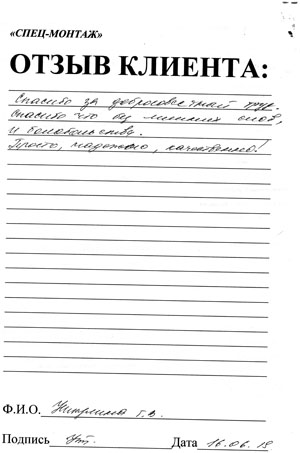 «СПЕЦ-МОНТАЖ»
ОТЗЫВ КЛИЕНТА:
Спасибо за добросовестный труд.
Спасибо что без лишних слов,
и
Просто, надежно, качественно!
Ф.И.О.
Подпись Дата 16.06.18